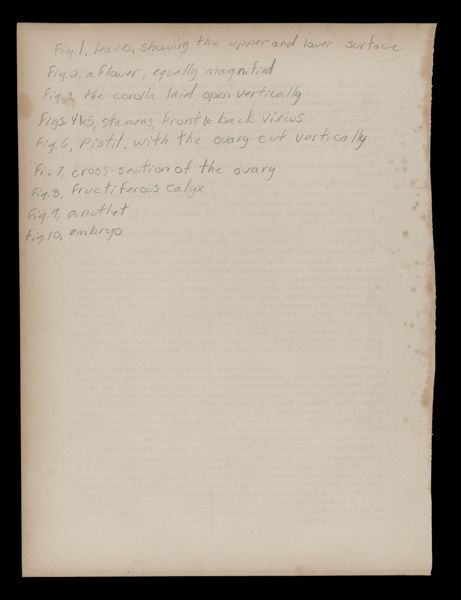 Fig. 1, leaves, showing the upper and lower surface
Fig. 2, a flower, equally magnified
Fig. 3, the corolla laid open vertically
Figs. 4&5, stamens, front & back views
Fig. 6, Pistil, with the ovary cut vertically
Fi. 7, cross-section of the ovary
Fig. 8, Fructiferous calyx
Fig. 9, a nutlet
Fig. 10, embryo